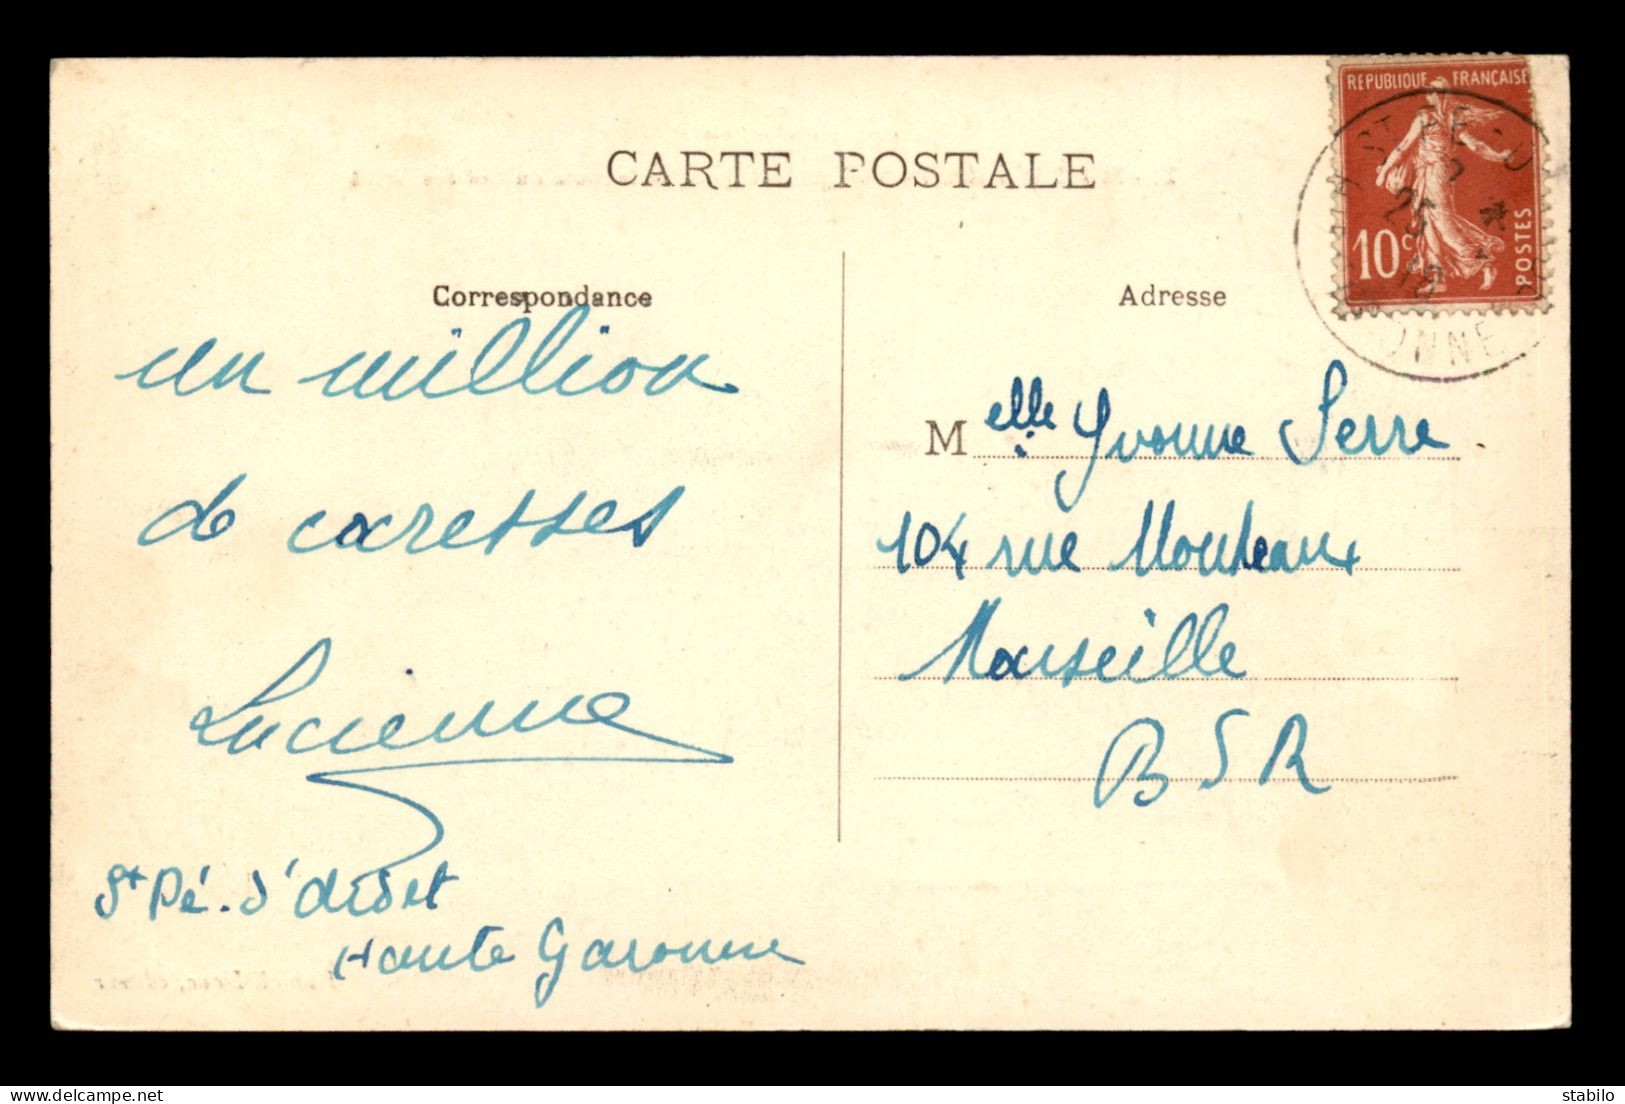 REPUBLIQUE FRANÇAISE
10c
POSTES
ST PE D
25
ONNE
CARTE POSTALE
Correspondance
un million
de caresses
Lucienne
St Pé. d'ardet
Haute Garonne
Adresse
Melle Yvonne Serre
104 rue
Marseille
BSR
stabilo